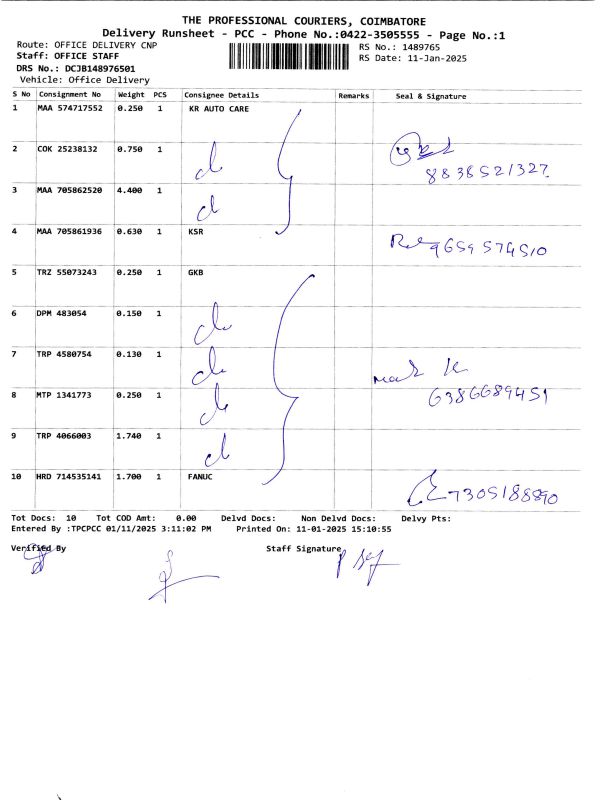 THE PROFESSIONAL COURIERS, COIMBATORE
Delivery Runsheet - PCC - Phone No.:0422-3505555 - Page No.:1
Route: OFFICE DELIVERY CNP
Staff: OFFICE STAFF
DRS No.: DCJB148976501
Vehicle: Office Delivery
RS No.: 1489765
RS Date: 11-Jan-2025
S No Consignment No Weight PCS Consignee Details Remarks Seal & Signature
1 MAA 574717552 0.250 1 KR AUTO CARE
2 COK 25238132 0.750 1
8838521327
3 MAA 705862520 4.400 1
4 MAA 705861936 0.630 1 KSR
9659574510
5 TRZ 55073243 0.250 1 GKB
6 DPM 483054 0.150 1
7 TRP 4580754 0.130 1
8 MTP 1341773 0.250 1
6386689451
9 TRP 4066003 1.740 1
10 HRD 714535141 1.700 1 FANUC
Tot Docs: 10 Tot COD Amt: 0.00 Delvd Docs: Non Delvd Docs: Delvy Pts:
Entered By :TPCPCC 01/11/2025 3:11:02 PM Printed On: 11-01-2025 15:10:55
Verified By Staff Signature